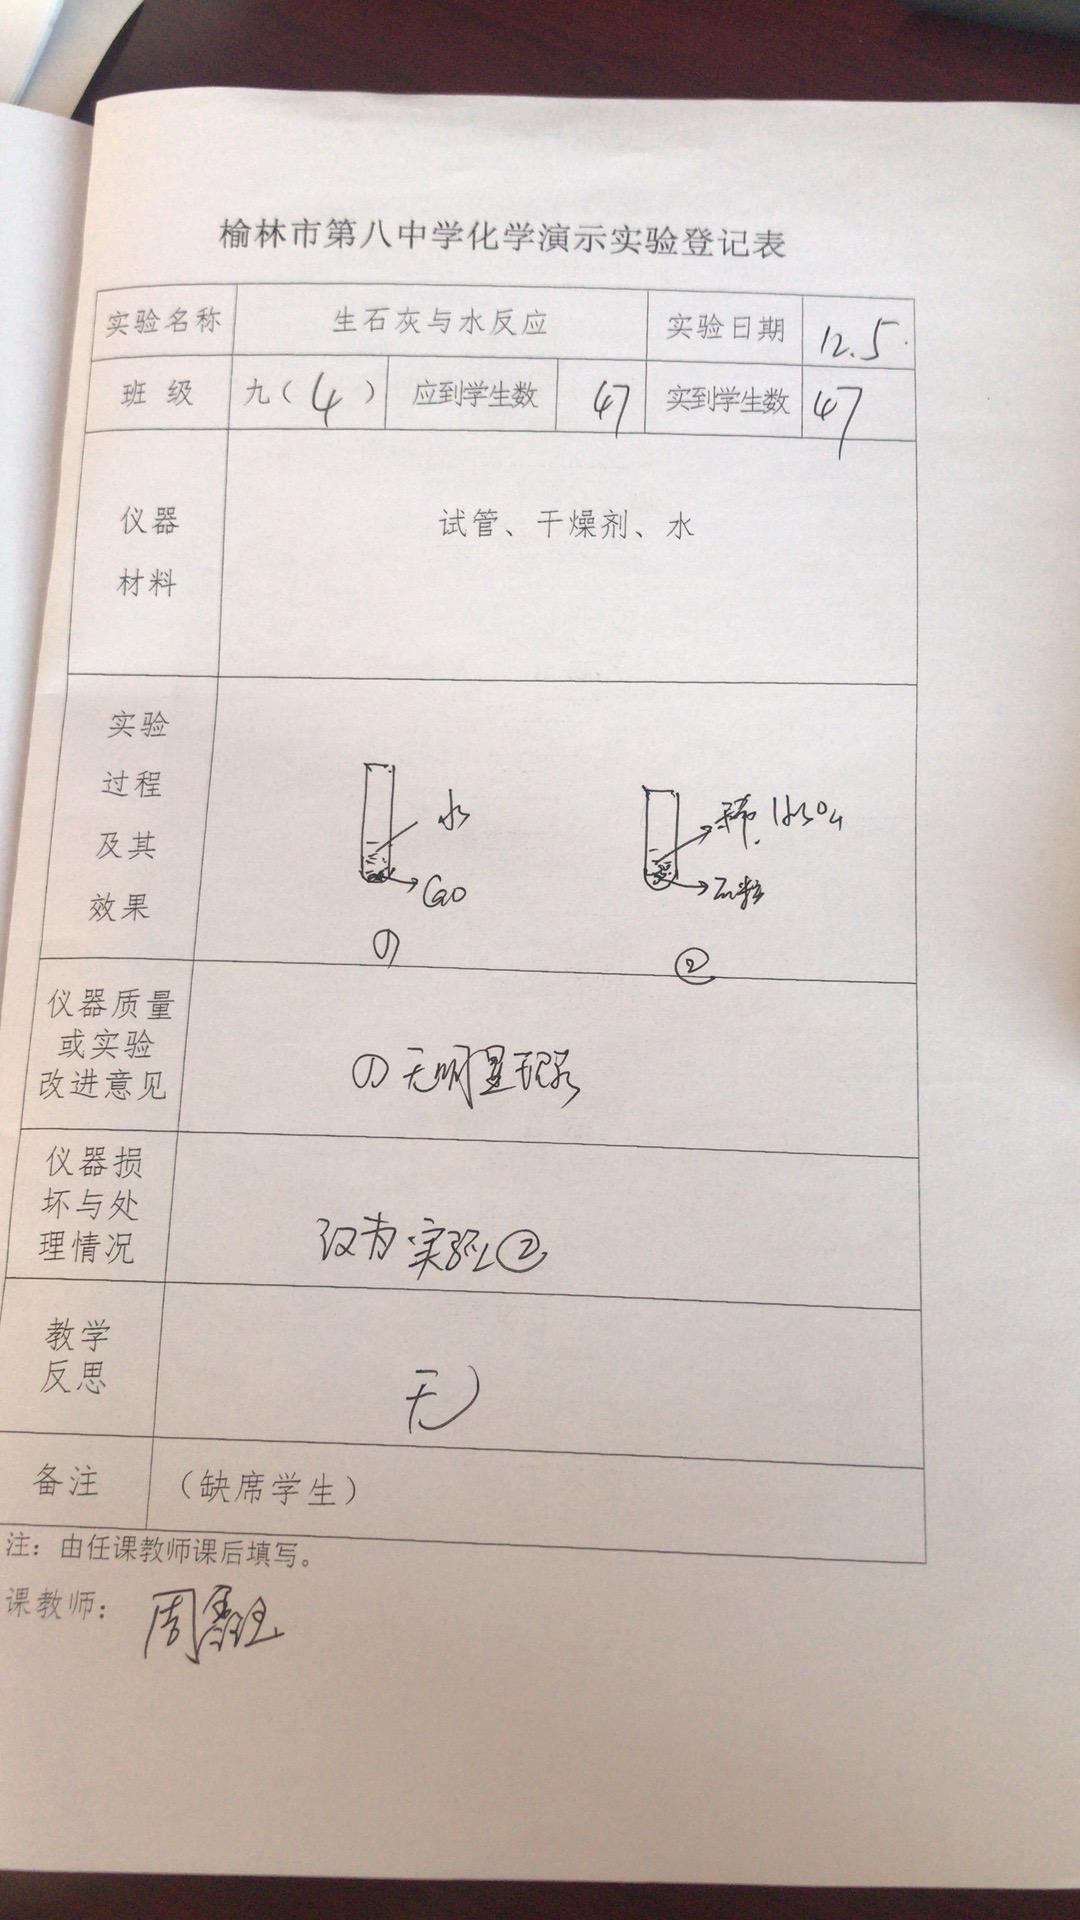 榆林市第八中学化学演示实验登记表
实验名称 生石灰与水反应 实验日期 12.5.
班 级 九（4） 应到学生数 47 实到学生数 47
仪器
材料
试管、干燥剂、水
实验
过程
及其
效果
水
CaO
①
稀H2SO4
②
仪器质量
或实验
改进意见
① 无明显现象
仪器损
坏与处
理情况
改为实验②
教学
反思
无
备注 （缺席学生）
注：由任课教师课后填写。
课教师： 周